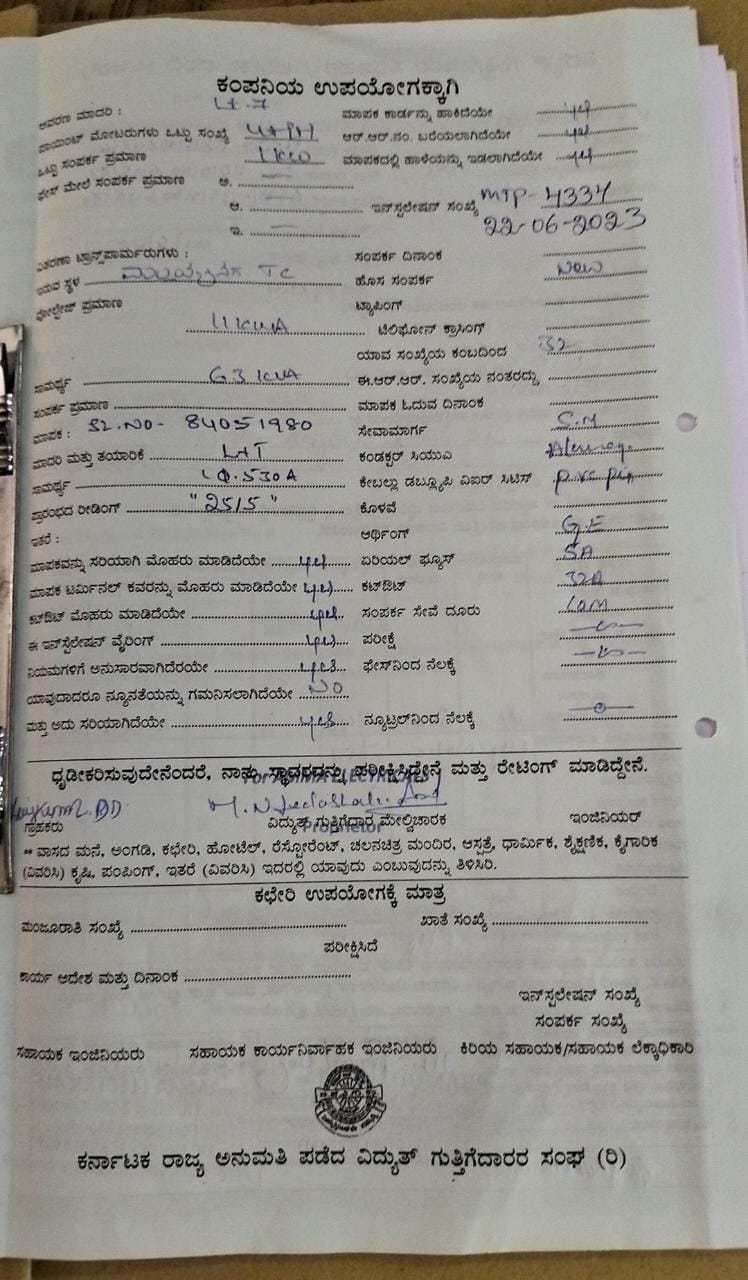 ಕಂಪನಿಯ ಉಪಯೋಗಕ್ಕಾಗಿ
ಆವರಣ ಮಾದರಿ : Lt-7 ಮಾಪಕ ಕಾರ್ಡನ್ನು ಹಾಕಿದೆಯೇ
ಪಾಯಿಂಟ್ ಮೋಟರುಗಳು ಒಟ್ಟು ಸಂಖ್ಯೆ ಆರ್.ಆರ್.ನಂ. ಬರೆಯಲಾಗಿದೆಯೇ
ಒಟ್ಟು ಸಂಪರ್ಕ ಪ್ರಮಾಣ 1kw ಮಾಪಕದಲ್ಲಿ ಹಾಳೆಯನ್ನು ಇಡಲಾಗಿದೆಯೇ
ಫೇಸ್ ಮೇಲೆ ಸಂಪರ್ಕ ಪ್ರಮಾಣ ಅ.
ಆ. ಇನ್‌ಸ್ಟಲೇಷನ್ ಸಂಖ್ಯೆ MTP-4334
ಇ. 22-06-2023
ವಿತರಣಾ ಟ್ರಾನ್ಸ್‌ಫಾರ್ಮರುಗಳು : ಸಂಪರ್ಕ ದಿನಾಂಕ
ಇರುವ ಸ್ಥಳ TC ಹೊಸ ಸಂಪರ್ಕ New
ವೋಲ್ಟೇಜ್ ಪ್ರಮಾಣ ಟ್ಯಾಪಿಂಗ್
11KVA ಟೆಲಿಫೋನ್ ಕ್ರಾಸಿಂಗ್
ಯಾವ ಸಂಖ್ಯೆಯ ಕಂಬದಿಂದ 32
ಸಾಮರ್ಥ್ಯ 63 KVA ಈ.ಆರ್.ಆರ್. ಸಂಖ್ಯೆಯ ನಂತರದ್ದು
ಸಂಪರ್ಕ ಪ್ರಮಾಣ ಮಾಪಕ ಓದುವ ದಿನಾಂಕ
ಮಾಪಕ : SL.NO- 84051980 ಸೇವಾಮಾರ್ಗ S.M
ಮಾದರಿ ಮತ್ತು ತಯಾರಿಕೆ L+T ಕಂಡಕ್ಟರ್ ಸಿಯುಎ
ಸಾಮರ್ಥ್ಯ ಕೇಬಲ್ಲು ಡಬ್ಲ್ಯೂಪಿ ವಿಐರ್ ಸಿಟಿಸ್
ಪ್ರಾರಂಭದ ರೀಡಿಂಗ್ "25/5" ಕೊಳವೆ
ಇತರೆ : ಆರ್ಥಿಂಗ್ G.E
ಮಾಪಕವನ್ನು ಸರಿಯಾಗಿ ಮೊಹರು ಮಾಡಿದೆಯೇ ಏರಿಯಲ್ ಫ್ಯೂಸ್ 5A
ಮಾಪಕ ಟರ್ಮಿನಲ್ ಕವರನ್ನು ಮೊಹರು ಮಾಡಿದೆಯೇ ಕಟ್‌ಔಟ್ 32A
ಕಟ್‌ಔಟ್ ಮೊಹರು ಮಾಡಿದೆಯೇ ಸಂಪರ್ಕ ಸೇವೆ ದೂರು
ಈ ಇನ್‌ಸ್ಟಲೇಷನ್ ವೈರಿಂಗ್ ಪರೀಕ್ಷೆ
ನಿಯಮಗಳಿಗೆ ಅನುಸಾರವಾಗಿದೆರಯೇ ಫೇಸ್‌ನಿಂದ ನೆಲಕ್ಕೆ
ಯಾವುದಾದರೂ ನ್ಯೂನತೆಯನ್ನು ಗಮನಿಸಲಾಗಿದೆಯೇ NO
ಮತ್ತು ಅದು ಸರಿಯಾಗಿದೆಯೇ ನ್ಯೂಟ್ರಲ್‌ನಿಂದ ನೆಲಕ್ಕೆ
ಧೃಡೀಕರಿಸುವುದೇನೆಂದರೆ, ನಾನು ಸ್ಥಾವರವನ್ನು ಪರೀಕ್ಷಿಸಿದ್ದೇನೆ ಮತ್ತು ರೇಟಿಂಗ್ ಮಾಡಿದ್ದೇನೆ.
ಗ್ರಾಹಕರು ವಿದ್ಯುತ್ ಗುತ್ತಿಗೆದಾರ ಮೇಲ್ವಿಚಾರಕ ಇಂಜಿನಿಯರ್
Proprietor
** ವಾಸದ ಮನೆ, ಅಂಗಡಿ, ಕಛೇರಿ, ಹೋಟೆಲ್, ರೆಸ್ಟೋರೆಂಟ್, ಚಲನಚಿತ್ರ ಮಂದಿರ, ಆಸ್ಪತ್ರೆ, ಧಾರ್ಮಿಕ, ಶೈಕ್ಷಣಿಕ, ಕೈಗಾರಿಕ
(ವಿವರಿಸಿ) ಕೃಷಿ, ಪಂಪಿಂಗ್, ಇತರೆ (ವಿವರಿಸಿ) ಇದರಲ್ಲಿ ಯಾವುದು ಎಂಬುವುದನ್ನು ತಿಳಿಸಿರಿ.
ಕಛೇರಿ ಉಪಯೋಗಕ್ಕೆ ಮಾತ್ರ
ಮಂಜೂರಾತಿ ಸಂಖ್ಯೆ ಖಾತೆ ಸಂಖ್ಯೆ
ಪರೀಕ್ಷಿಸಿದೆ
ಕಾರ್ಯ ಆದೇಶ ಮತ್ತು ದಿನಾಂಕ
ಇನ್‌ಸ್ಪಲೇಷನ್ ಸಂಖ್ಯೆ
ಸಂಪರ್ಕ ಸಂಖ್ಯೆ
ಸಹಾಯಕ ಇಂಜಿನಿಯರು ಸಹಾಯಕ ಕಾರ್ಯನಿರ್ವಾಹಕ ಇಂಜಿನಿಯರು ಕಿರಿಯ ಸಹಾಯಕ/ಸಹಾಯಕ ಲೆಕ್ಕಾಧಿಕಾರಿ
ಕರ್ನಾಟಕ ರಾಜ್ಯ ಅನುಮತಿ ಪಡೆದ ವಿದ್ಯುತ್ ಗುತ್ತಿಗೆದಾರರ ಸಂಘ (ರಿ)